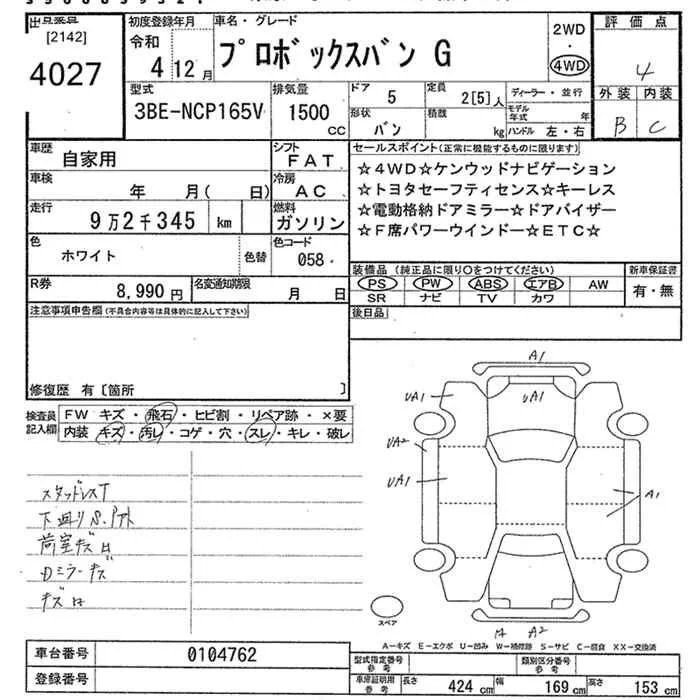 [2142]
4027
初度登録年月
令和
4 12月
車名・グレード
プロボックスバン G
2WD
・
4WD
評価点
4
外装 内装
B C
型式
3BE-NCP165V
排気量
1500
cc
ドア
5
定員
2[5]人
ディーラー・並行
形状
バン
積載
kg
モデル年式
年
ハンドル 左・右
車歴
自家用
シフト
FAT
車検
年 月( 日)
冷房
AC
走行
9万2千345 km
燃料
ガソリン
色
ホワイト
色替
色コード
058
R券
8,990円
名変通知期限
月 日
セールスポイント(正常に機能するものに限ります)
☆4WD☆ケンウッドナビゲーション
☆トヨタセーフティセンス☆キーレス
☆電動格納ドアミラー☆ドアバイザー
☆F席パワーウインドー☆ETC☆
装備品 (純正品に限り○をつけてください)
PS PW ABS エアB AW
SR ナビ TV カワ
新車保証書
有・無
後日品
注意事項申告欄(不具合内容等は具体的に記入して下さい)
修復歴 有[箇所 ]
検査員
記入欄
FW キズ・飛石・ヒビ割・リペア跡・×要
内装 キズ・汚レ・コゲ・穴・スレ・キレ・破レ
スタッドレスT
下廻りS.
荷室キズ
Dミラーキズ
キズ
A1
UA1
UA1
UA2
UA1
A1
A2
スペア
A−キズ E−エクボ U−凹み W−補修跡 S−サビ C−腐食 XX−交換済
車台番号
0104762
登録番号
型式指定番号
参考
類別区分番号
参考
車庫証明用
参考
長さ 424 cm
幅 169 cm
高さ 153 cm